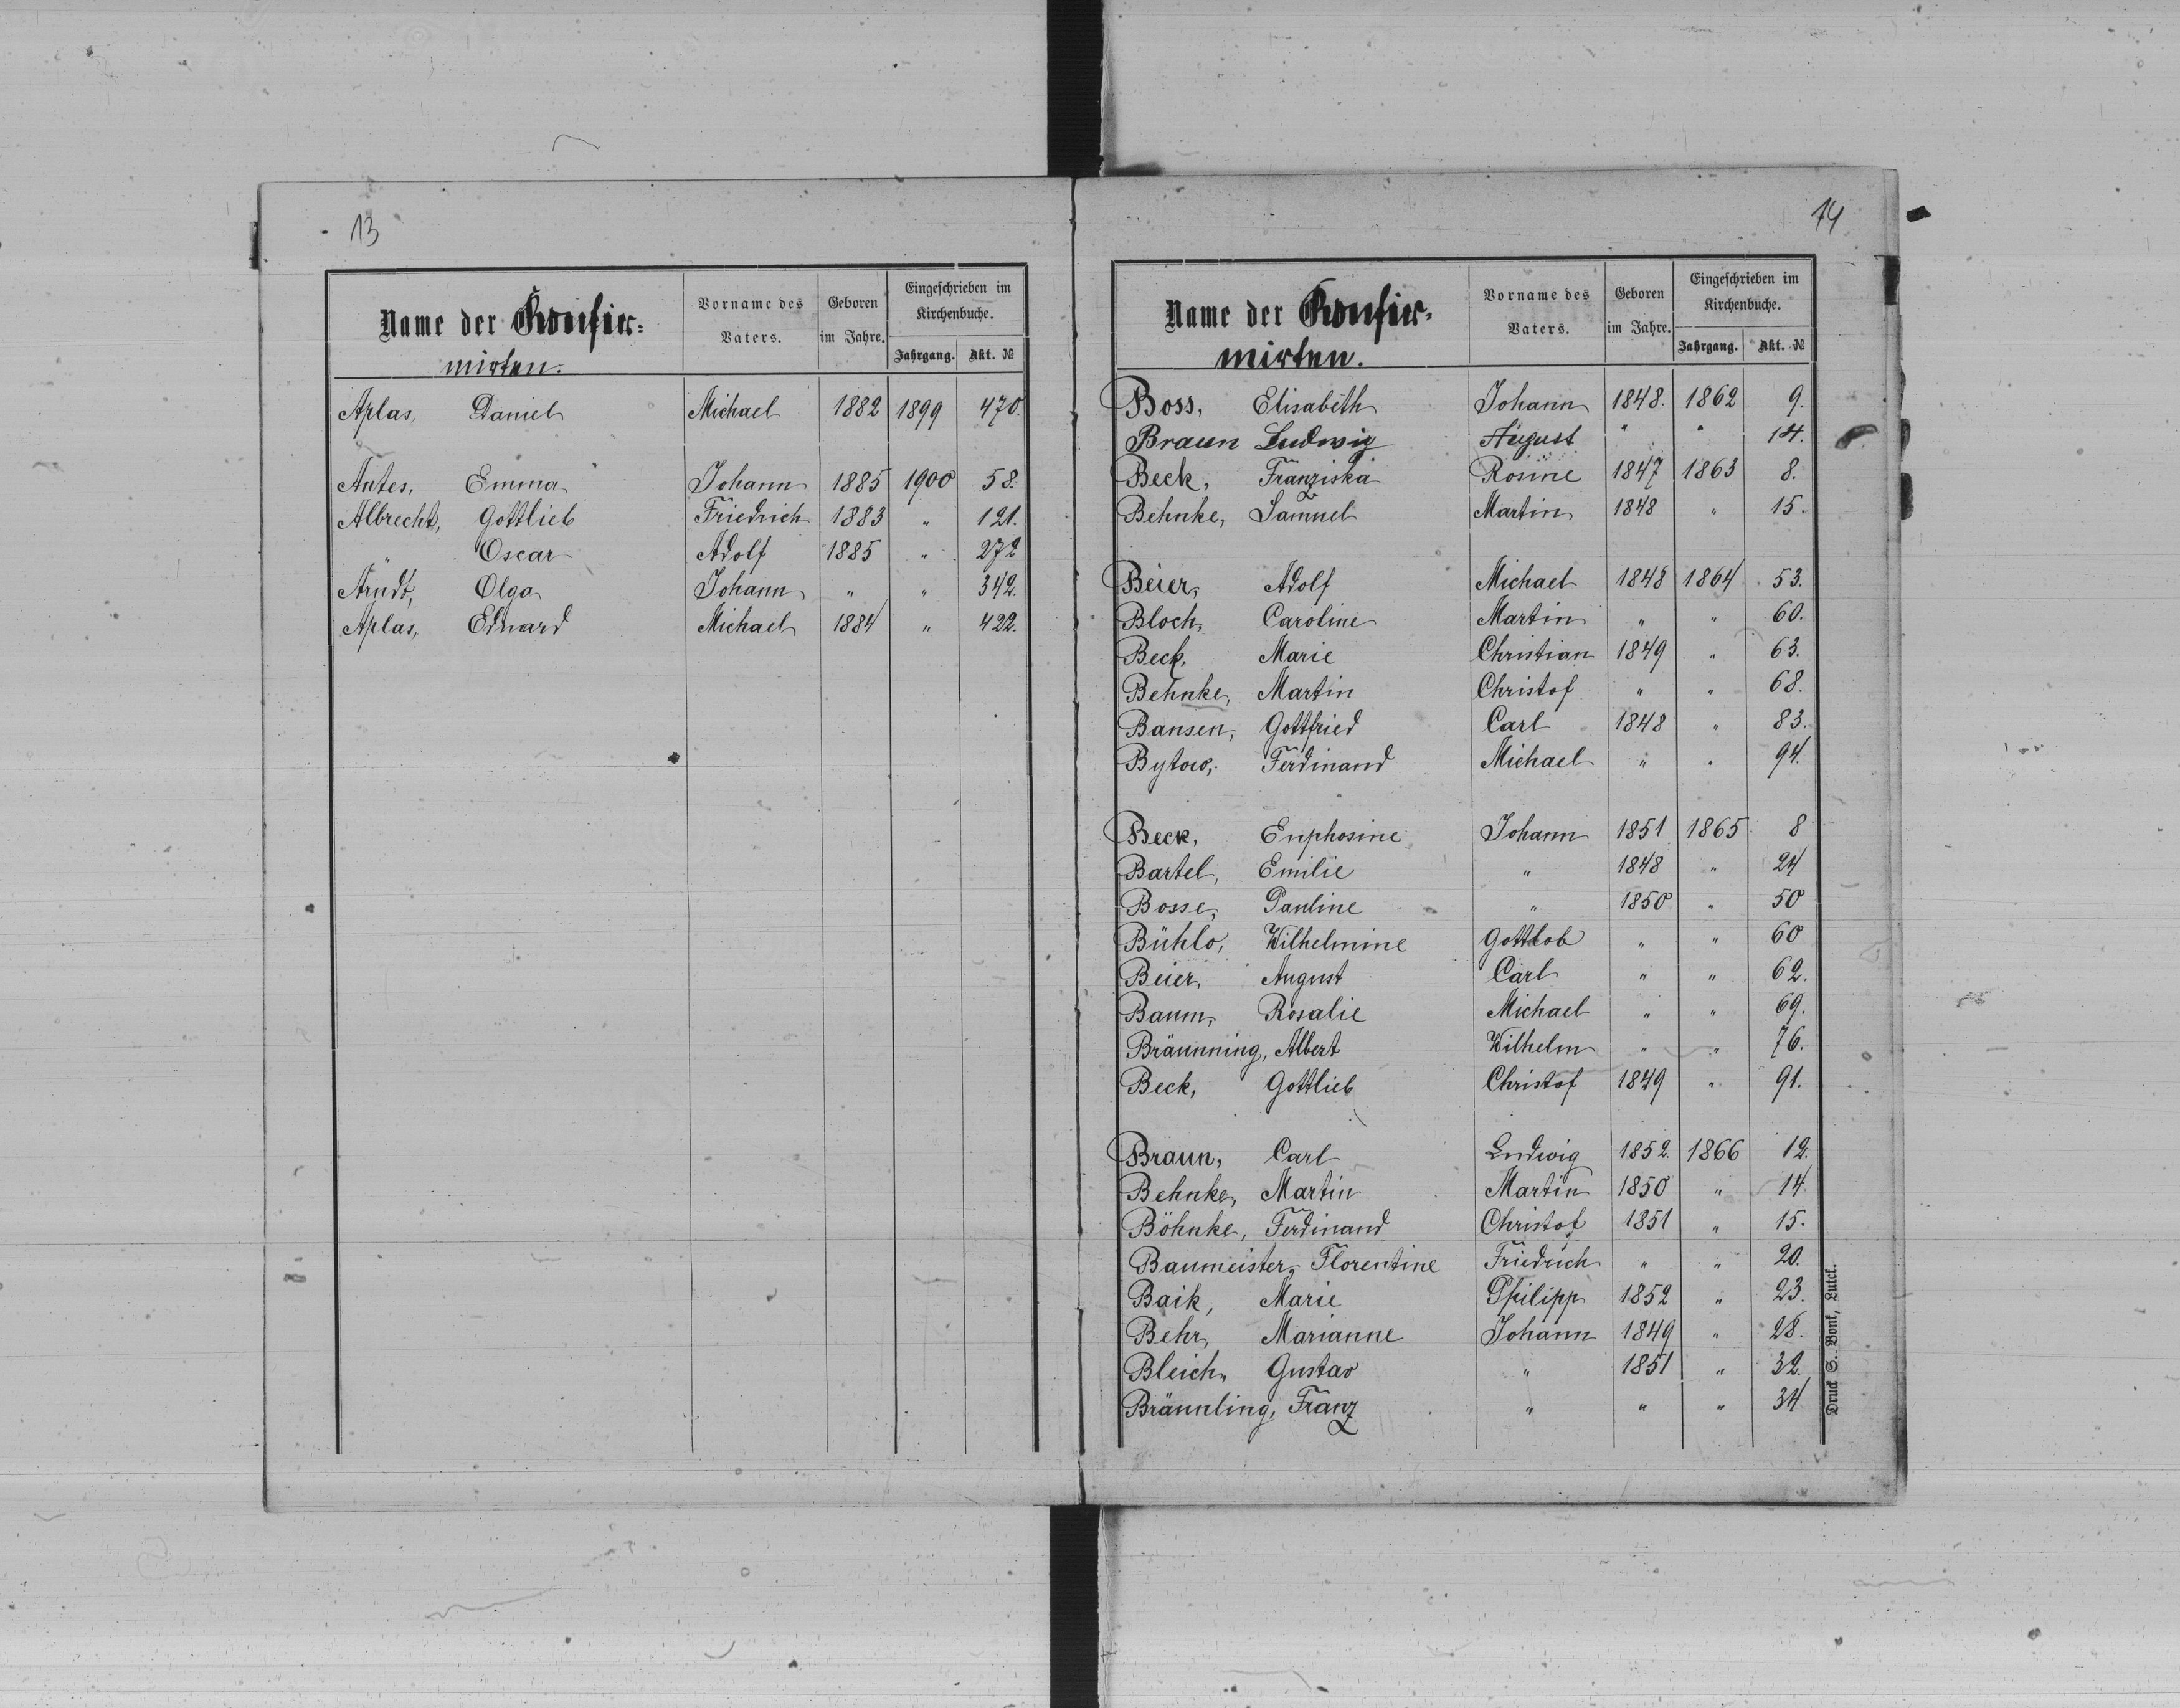 13
Name der Konfir-
mirten.
Vorname des
Vaters.
Geboren
im Jahre.
Eingeschrieben im
Kirchenbuche.
Jahrgang. Akt. №
Aplas, Daniel Michael 1882 1899 470.
Antes, Emma Johann 1885 1900 58.
Albrecht, Gottlieb Friedrich 1883 " 121.
" Oscar Adolf 1885 " 272
Arndt, Olga Johann " " 342.
Aplas, Eduard Michael 1884 " 422.
14
Name der Konfir-
mirten.
Vorname des
Vaters.
Geboren
im Jahre.
Eingeschrieben im
Kirchenbuche.
Jahrgang. Akt. №
Boss, Elisabeth Johann 1848. 1862 9.
Braun Ludwig August " " 14.
Beck, Franziska Rosine 1847 1863 8.
Behnke, Samuel Martin 1848 " 15.
Beier, Adolf Michael 1848 1864 53.
Bloch, Caroline Martin " " 60.
Beck, Marie Christian 1849 " 63.
Behnke, Martin Christof " " 68.
Bansen, Gottfried Carl 1848 " 83.
Bytow, Ferdinand Michael " " 94.
Beck, Euphosine Johann 1851 1865 8
Bartel, Emilie " 1848 " 24
Bosse, Pauline " 1850 " 50
Bühlo, Wilhelmine Gottlob " " 60
Beier, August Carl " " 62.
Baum, Rosalie Michael " " 69.
Bräunning, Albert Wilhelm " " 76.
Beck, Gottlieb Christof 1849 " 91.
Braun, Carl Ludwig 1852. 1866 12.
Behnke, Martin Martin 1850 " 14
Böhnke, Ferdinand Christof 1851 " 15.
Baumeister, Florentine Friedrich " " 20.
Baik, Marie Philipp 1852 " 23.
Behr, Marianne Johann 1849 " 28.
Bleich, Gustav " 1851 " 32.
Bräunling, Franz " " " 34
Druck S. Bonk, Lutck.